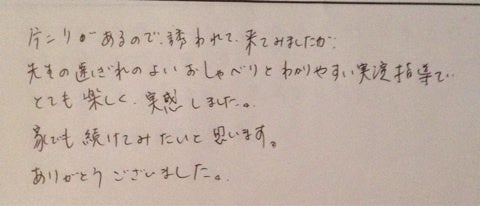 片こりがあるので、誘われて、来てみましたが、
先生の歯ぎれのよいおしゃべりとわかりやすい実演指導で
とても楽しく、実感しました。
家でも続けてみたいと思います。
ありがとうございました。